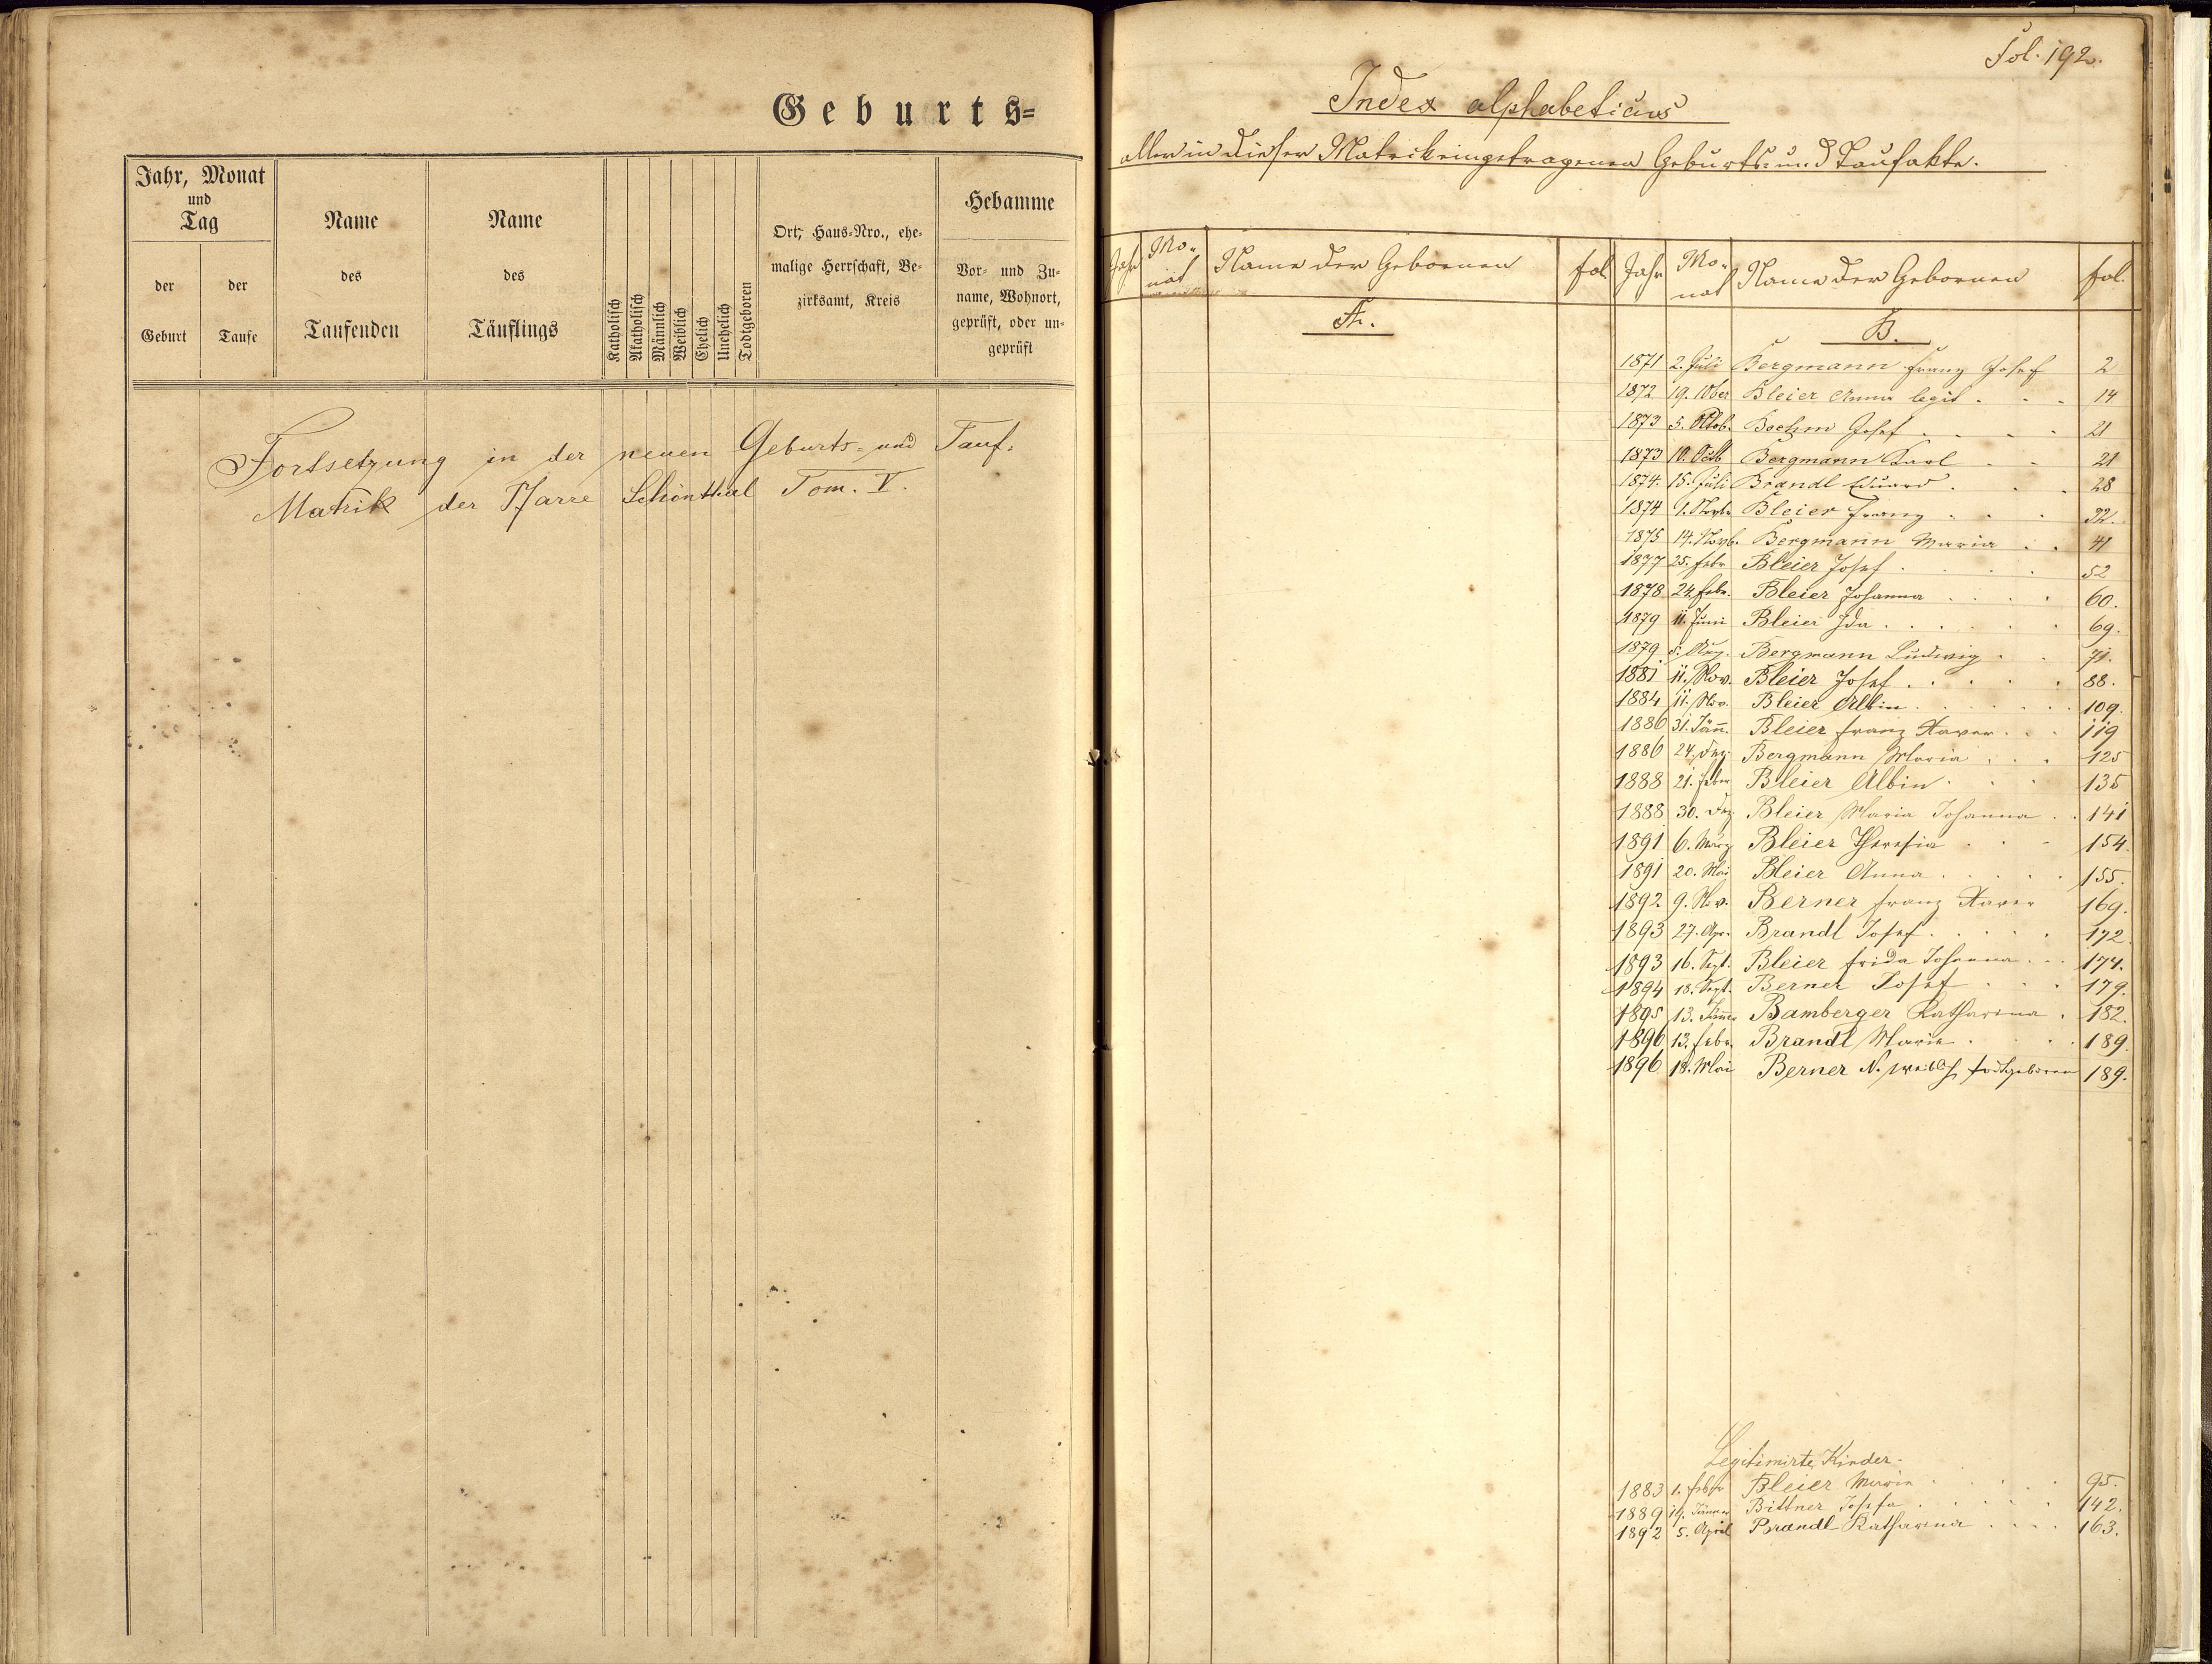 Geburts=
Jahr, Monat
und
Tag
der
Geburt
der
Taufe
Name
des
Taufenden
Name
des
Täuflings
Katholisch
Akatholisch
Männlich
Weiblich
Ehelich
Unehelich
Todtgeboren
Ort, Haus-Nro., ehe-
malige Herrschaft, Be-
zirksamt, Kreis
Hebamme
Vor- und Zu-
name, Wohnort,
geprüft, oder un-
geprüft
Fortsetzung in der neuen Geburts- und Tauf-
Matrik der Pfarre Schönthal Tom. V.
Fol. 192.
Index alphabeticus
aller in dieser Matrik eingetragenen Geburts- und Taufakte.
Jahr Mo-nat Name der Gebornen fol. Jahr Mo-nat Name der Gebornen fol.
A. B.
1871 2. Juli Bergmann Franz Josef 2
1872 19. 10ber Bleier Anna legit. . . 14
1873 5. Oktob. Boehm Josef . . . . 21
1873 10. Octb Bergmann Karl . . 21
1874. 15. Juli Brandl Eduard . . . 28
1874 9. Novbr Bleier Franz . . . 32.
1875 14. Novb. Bergmann Maria . . 41
1877 25. Febr Bleier Josef . . . . 52
1878 24. Febr. Bleier Johanna . . . . 60.
1879 11. Juni Bleier Ida . . . . . . 69.
1879 5. Aug. Bergmann Ludwig . . 71.
1881 11. Nov. Bleier Josef . . . . . 88.
1884 11. Nov. Bleier Albin . . . . . . 109.
1886 31. Jänn. Bleier Franz Xaver . . . 119
1886 24. Dez. Bergmann Maria . . . 125
1888 21. Feber Bleier Albin . . . 135
1888 30. Dez. Bleier Maria Johanna . . 141
1891 6. März Bleier Theresia . . . 154.
1891 20. Mai Bleier Anna . . . . . 155.
1892 9. Nov. Berner Franz Xaver 169.
1893 27. Apr. Brandl Josef . . . . . 172.
1893 16. Sept. Bleier Frida Johanna . . . 174.
1894 18. Sept. Berner Josef . . . 179.
1895 13. Jänner Bamberger Katharina . 182.
1896 13. Febr. Brandl Marie . . . . 189.
1896 18. Mai Berner N. weibl. todtgeboren 189.
Legitimirte Kinder.
1883 1. Febr Bleier Maria . . . . . 95.
1889 19. Jänner Bittner Josefa . . . . . 142.
1892 5. April Brandl Katharina . . . . 163.